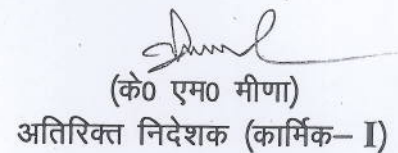 (के0 एम0 मीणा)
अतिरिक्त निदेशक (कार्मिक– I)